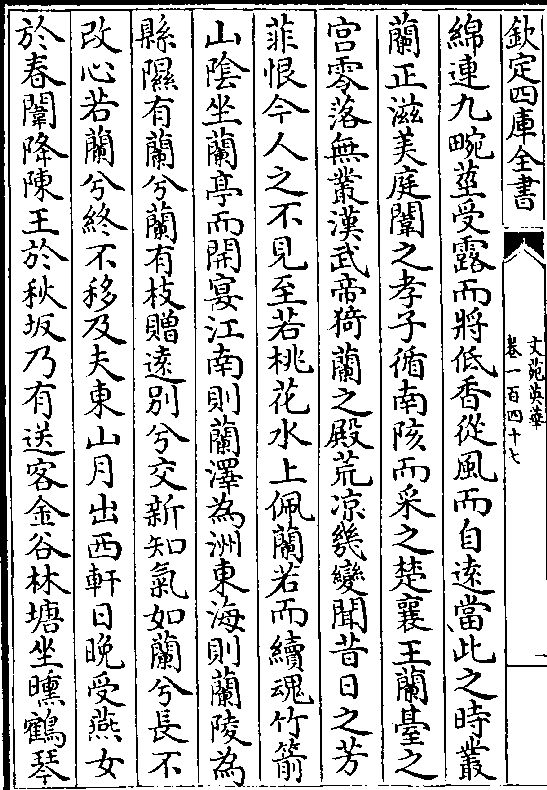 欽定四庫全書
文苑英華
卷一百四十七
一
綿連九畹莖受露而將低香從風而自遠當此之時叢
蘭正滋美庭闈之孝子循南陔而采之楚襄王蘭臺之
宫零落無叢漢武帝猗蘭之殿荒凉幾變聞昔日之芳
菲恨今人之不見至若桃花水上佩蘭若而續魂竹箭
山陰坐蘭亭而開宴江南則蘭澤為洲東海則蘭陵為
縣隰有蘭兮蘭有枝贈遠别兮交新知氣如蘭兮長不
改心若蘭兮終不移及夫東山月出西軒日晚受燕女
於春闈降陳王於秋坂乃有送客金谷林塘坐曛鶴琴